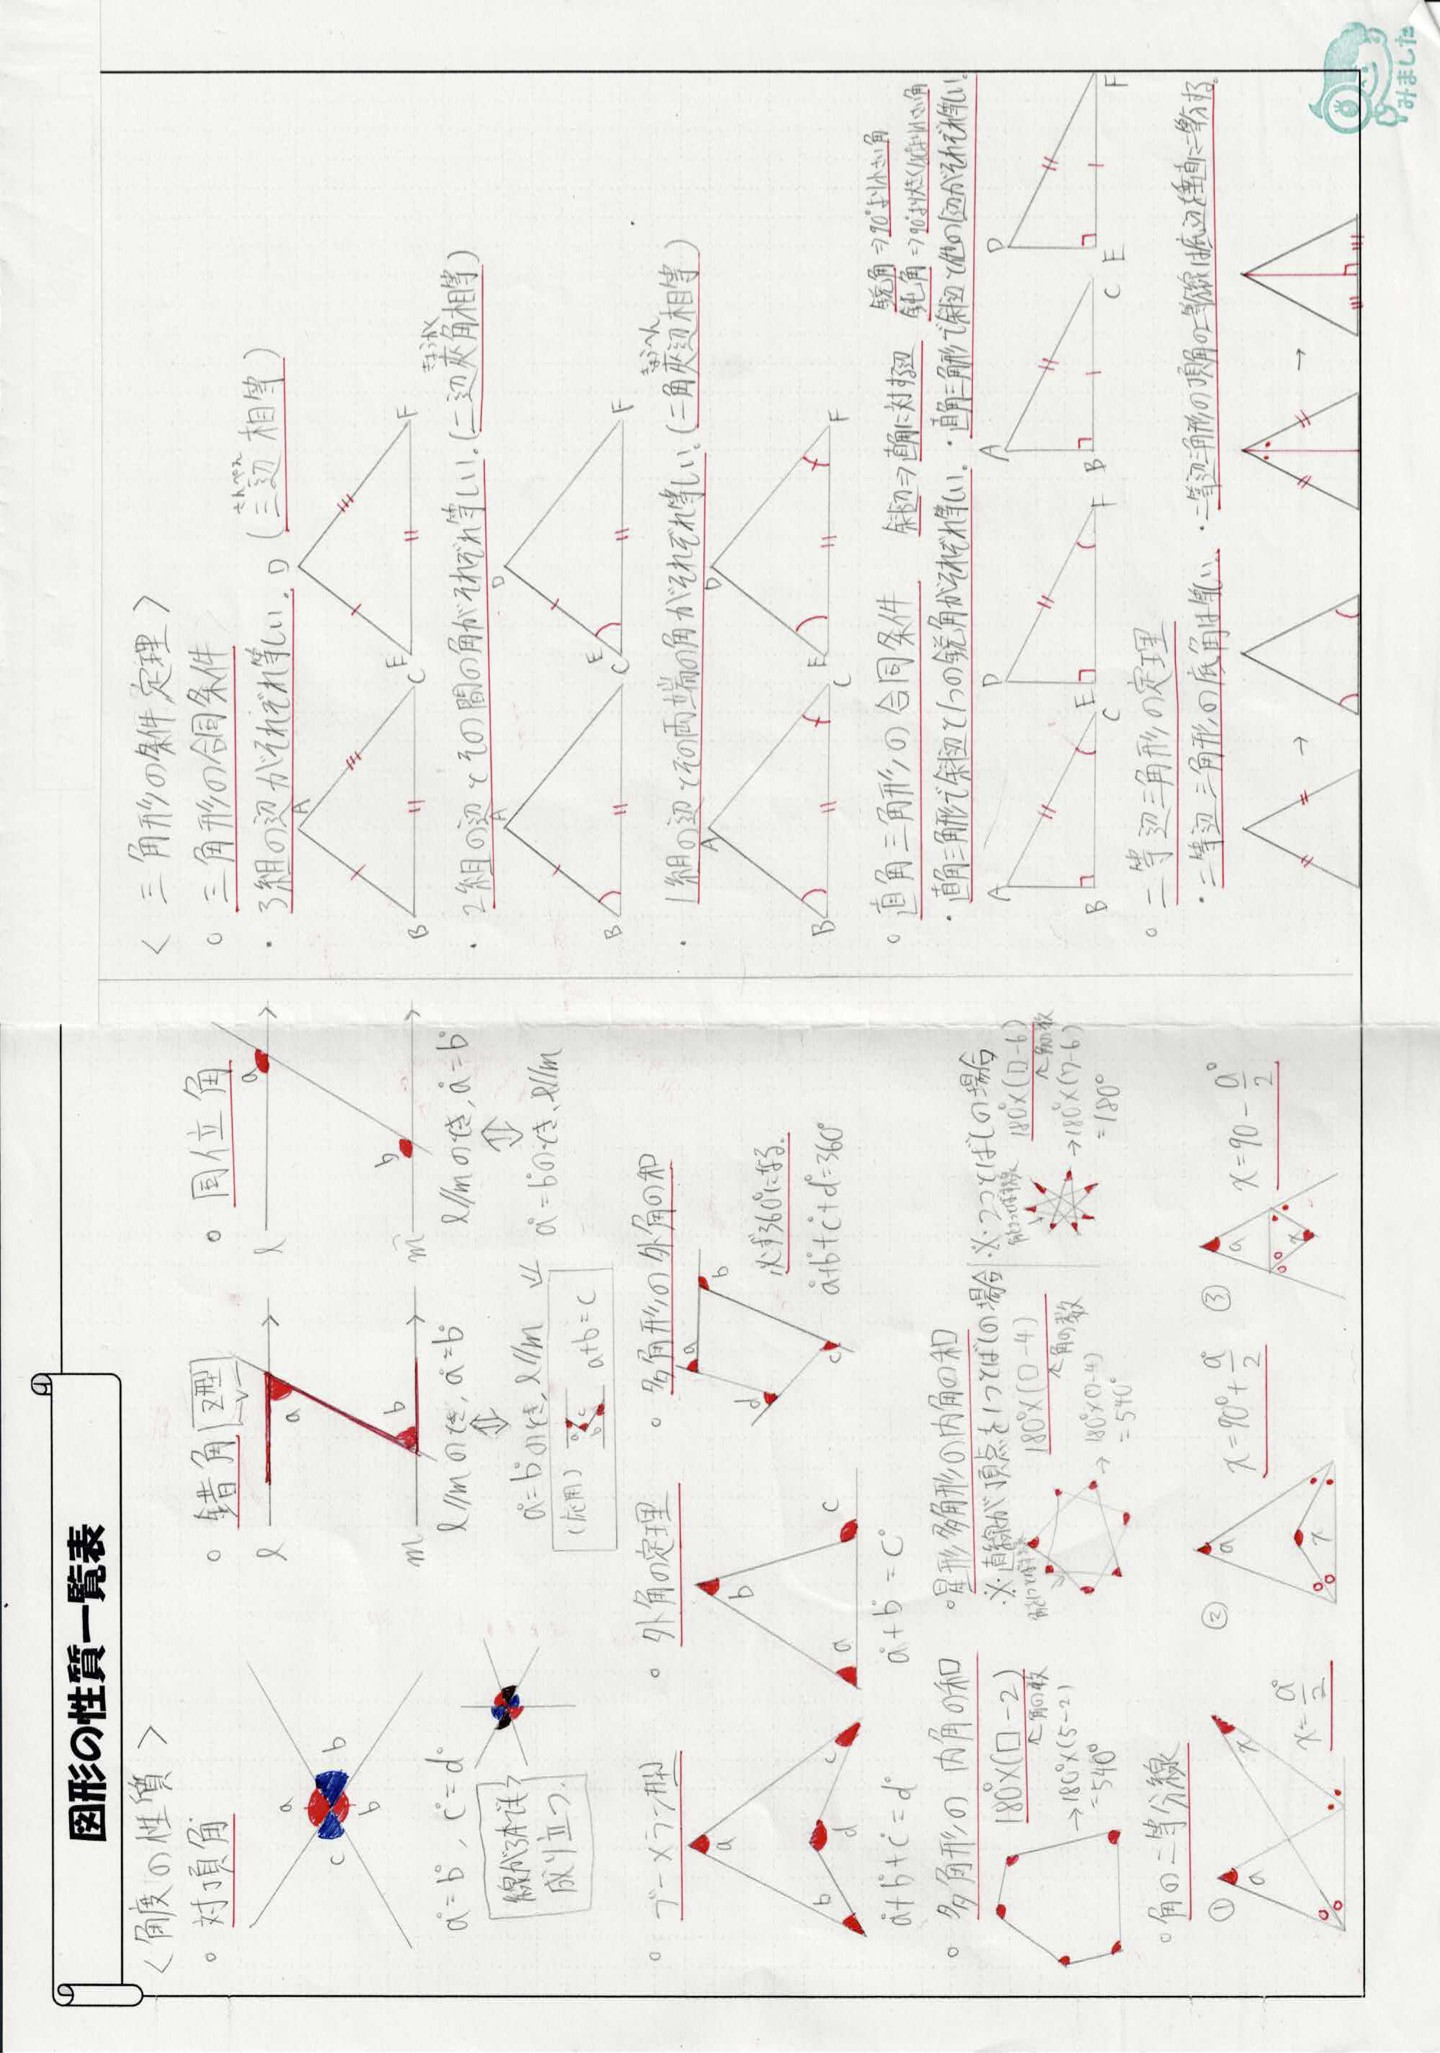 図形の性質一覧表
<角度の性質>
○ 対頂角
a
b
c
b
a°=b°, c°=d°
線が3本でも
成り立つ。
○ 錯角 Z型
l
a
b
m
l//mのとき, a°=b°
⇕
a°=b°のとき, l//m
(応用)
a
c
b
a+b=c
○ 同位角
l
a
b
m
l//mのとき, a°=b°
⇕
a°=b°のとき, l//m
○ ブーメラン型
a
b
c
d
a°+b°+c°=d°
○ 外角の定理
b
a
c
a°+b°=c°
○ 多角形の外角の和
a
b
c
d
必ず360°になる。
a°+b°+c°+d°=360°
○ 多角形の内角の和
180°×(□-2)
↑角の数
→180°×(5-2)
=540°
○星形多角形の内角の和
※直線が頂点を1つとばしの場合
180°×(□-4)
↑角の数
→180°×(7-4)
=540°
※2つとばしの場合
180°×(□-6)
↑角の数
→180°×(7-6)
=180°
○角の二等分線
①
a
x
x=a°/2
②
a
x
x=90°+a°/2
③
a
x
x=90-a°/2
<三角形の条件,定理>
○ 三角形の合同条件
・3組の辺がそれぞれ等しい。(三辺相等)
さんぺん
A
B
C
D
E
F
・2組の辺とその間の角がそれぞれ等しい。(二辺夾角相等)
きょうかく
A
B
C
D
E
F
・1組の辺とその両端の角がそれぞれ等しい。(二角夾辺相等)
きょうへん
A
B
C
D
E
F
○直角三角形の合同条件
斜辺⇒直角に対する辺
鋭角⇒90°より小さい角
鈍角⇒90°より大きく180°より小さい角
・直角三角形で斜辺と1つの鋭角がそれぞれ等しい。
・直角三角形で斜辺と他の辺がそれぞれ等しい。
A
B
C
D
E
F
A
B
C
D
E
F
○ 二等辺三角形の定理
・二等辺三角形の底角は等しい。
・二等辺三角形の頂角の二等分線は底辺を垂直に二等分する。
→
→
みました